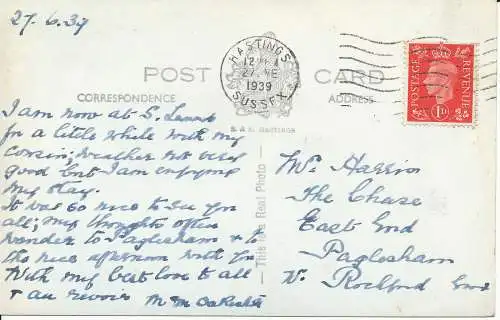 27.6.39
HASTINGS
27 JNE
1939
SUSSEX
POSTAGE
REVENUE
1D
POST CARD
CORRESPONDENCE
ADDRESS
— This is a Real Photo —
I am now at S. 
for a little while with my
cousin; weather not very
good but I am enjoying
my stay.
It was so nice to see you
all; my thoughts often
wander to Paglesham & to
the nice afternoon with you
With my best love to all
& au revoir M. M.
Mrs Harris
The Chase
East End
Paglesham
Nr. Rochford